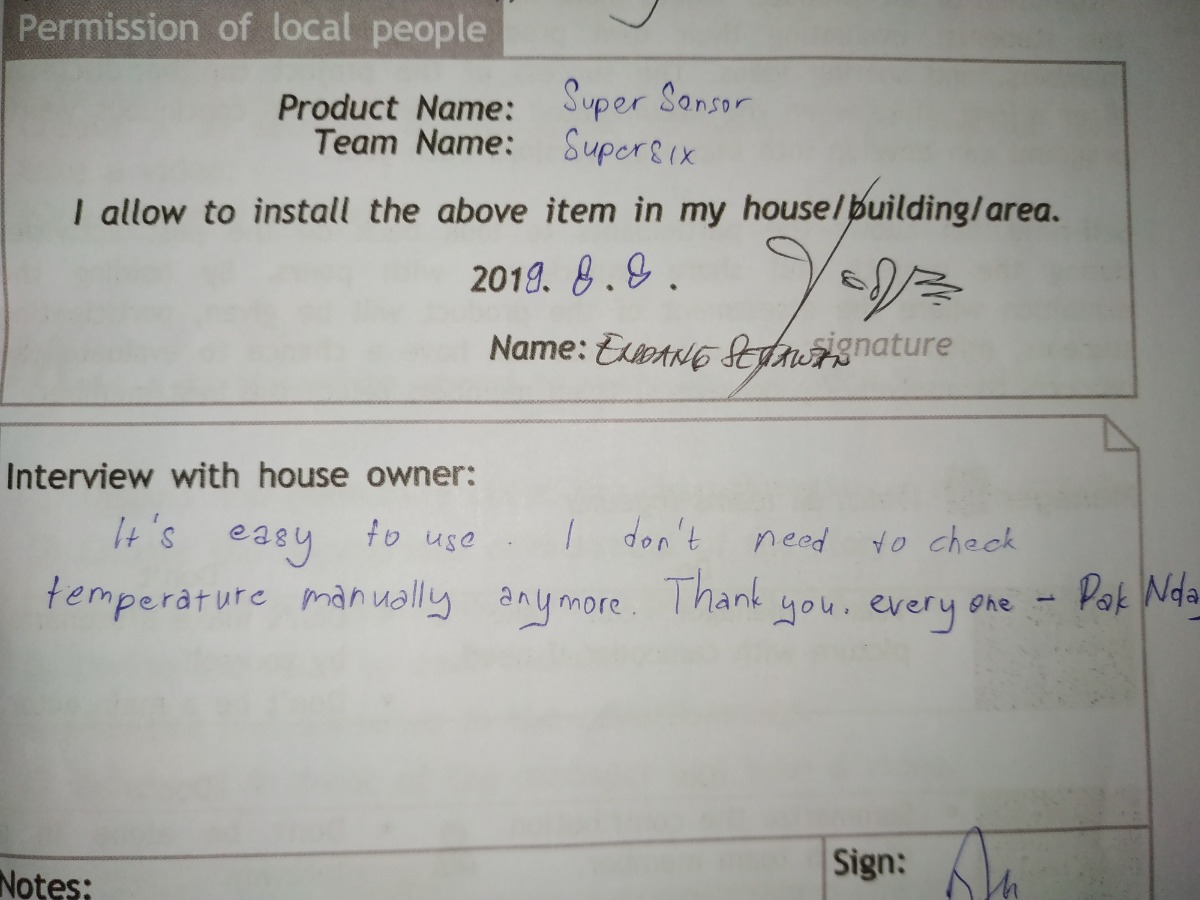 Permission of local people
Product Name: Super Sensor
Team Name: Supersix
I allow to install the above item in my house/building/area.
2019. 8. 8.
Name: ENDANG SETIAWAN signature
Interview with house owner:
It's easy to use. I don't need to check
temperature manually anymore. Thank you. everyone - Pak Nda
Sign:
Notes: